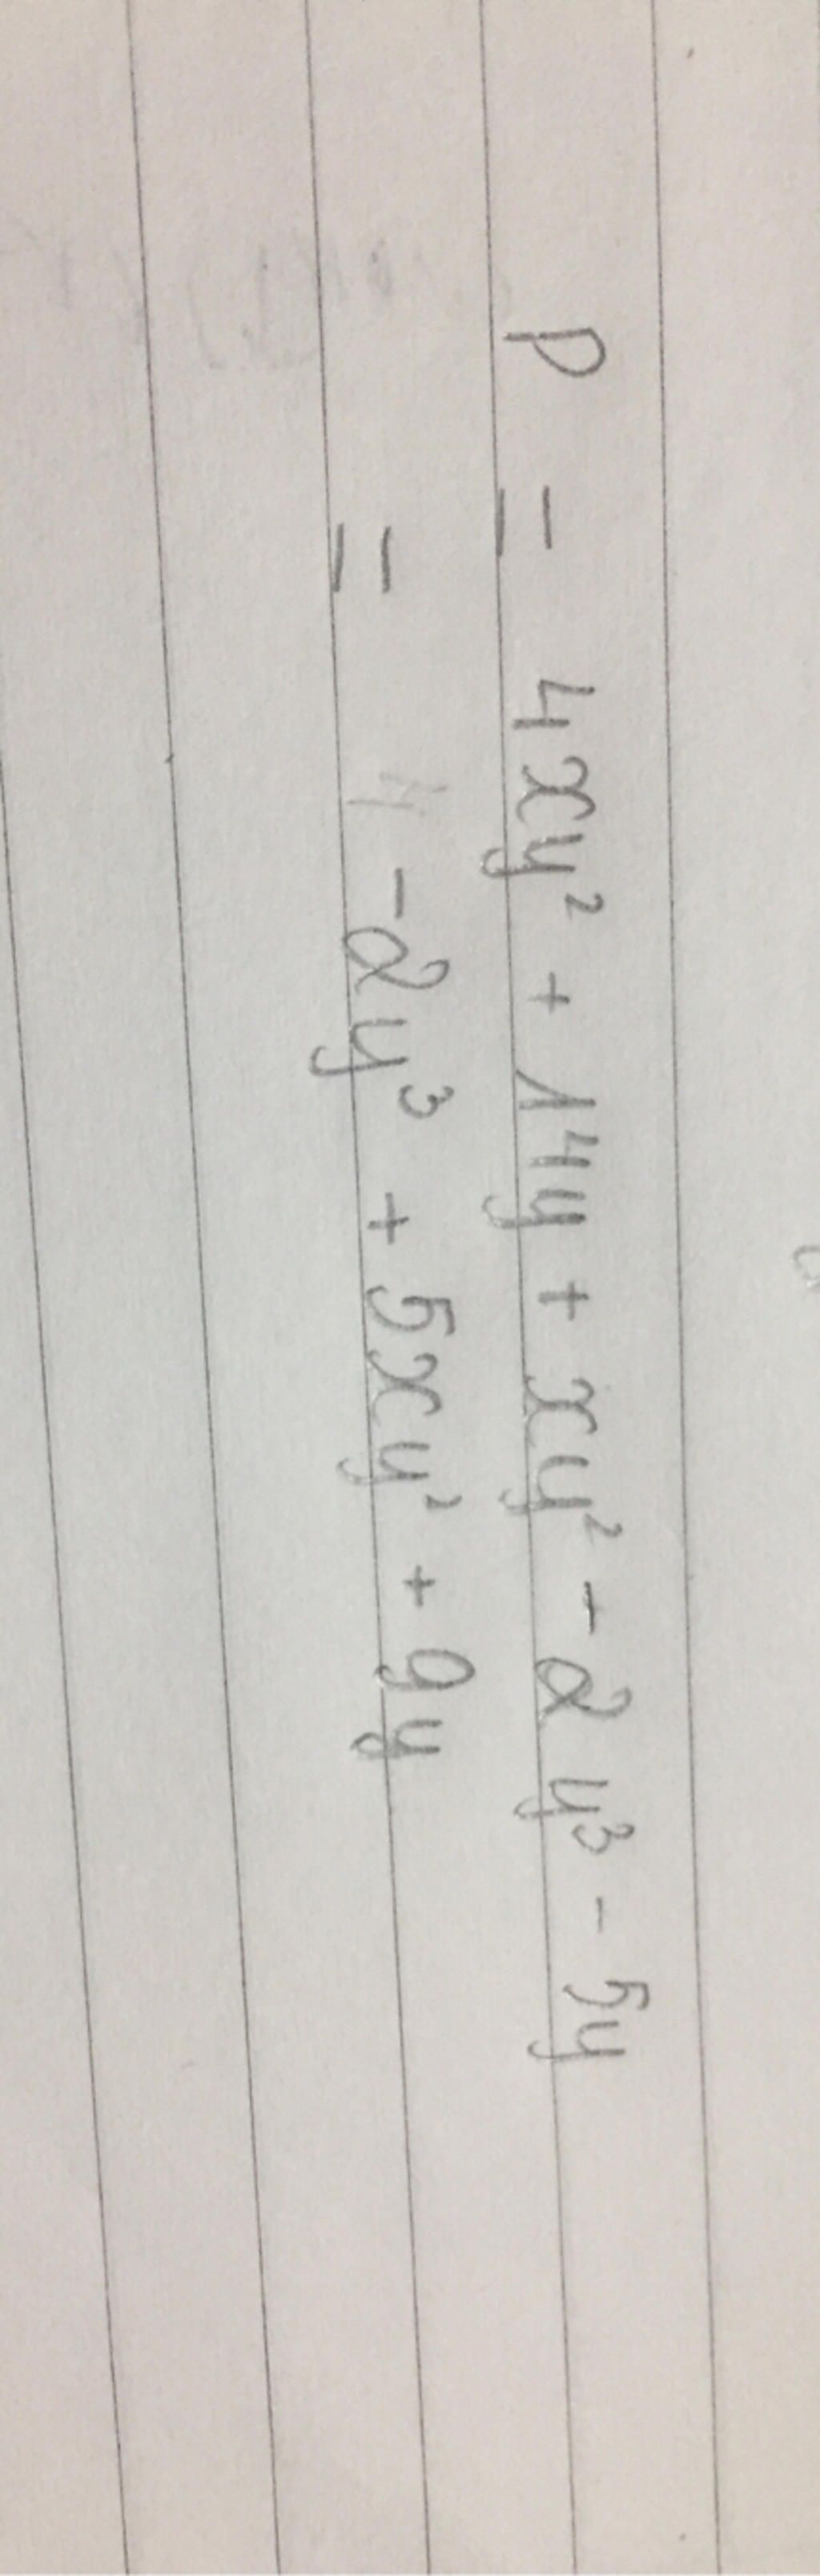 P = 4xy² + 14y + xy² - 2y³ - 5y
= -2y³ + 5xy² + 9y